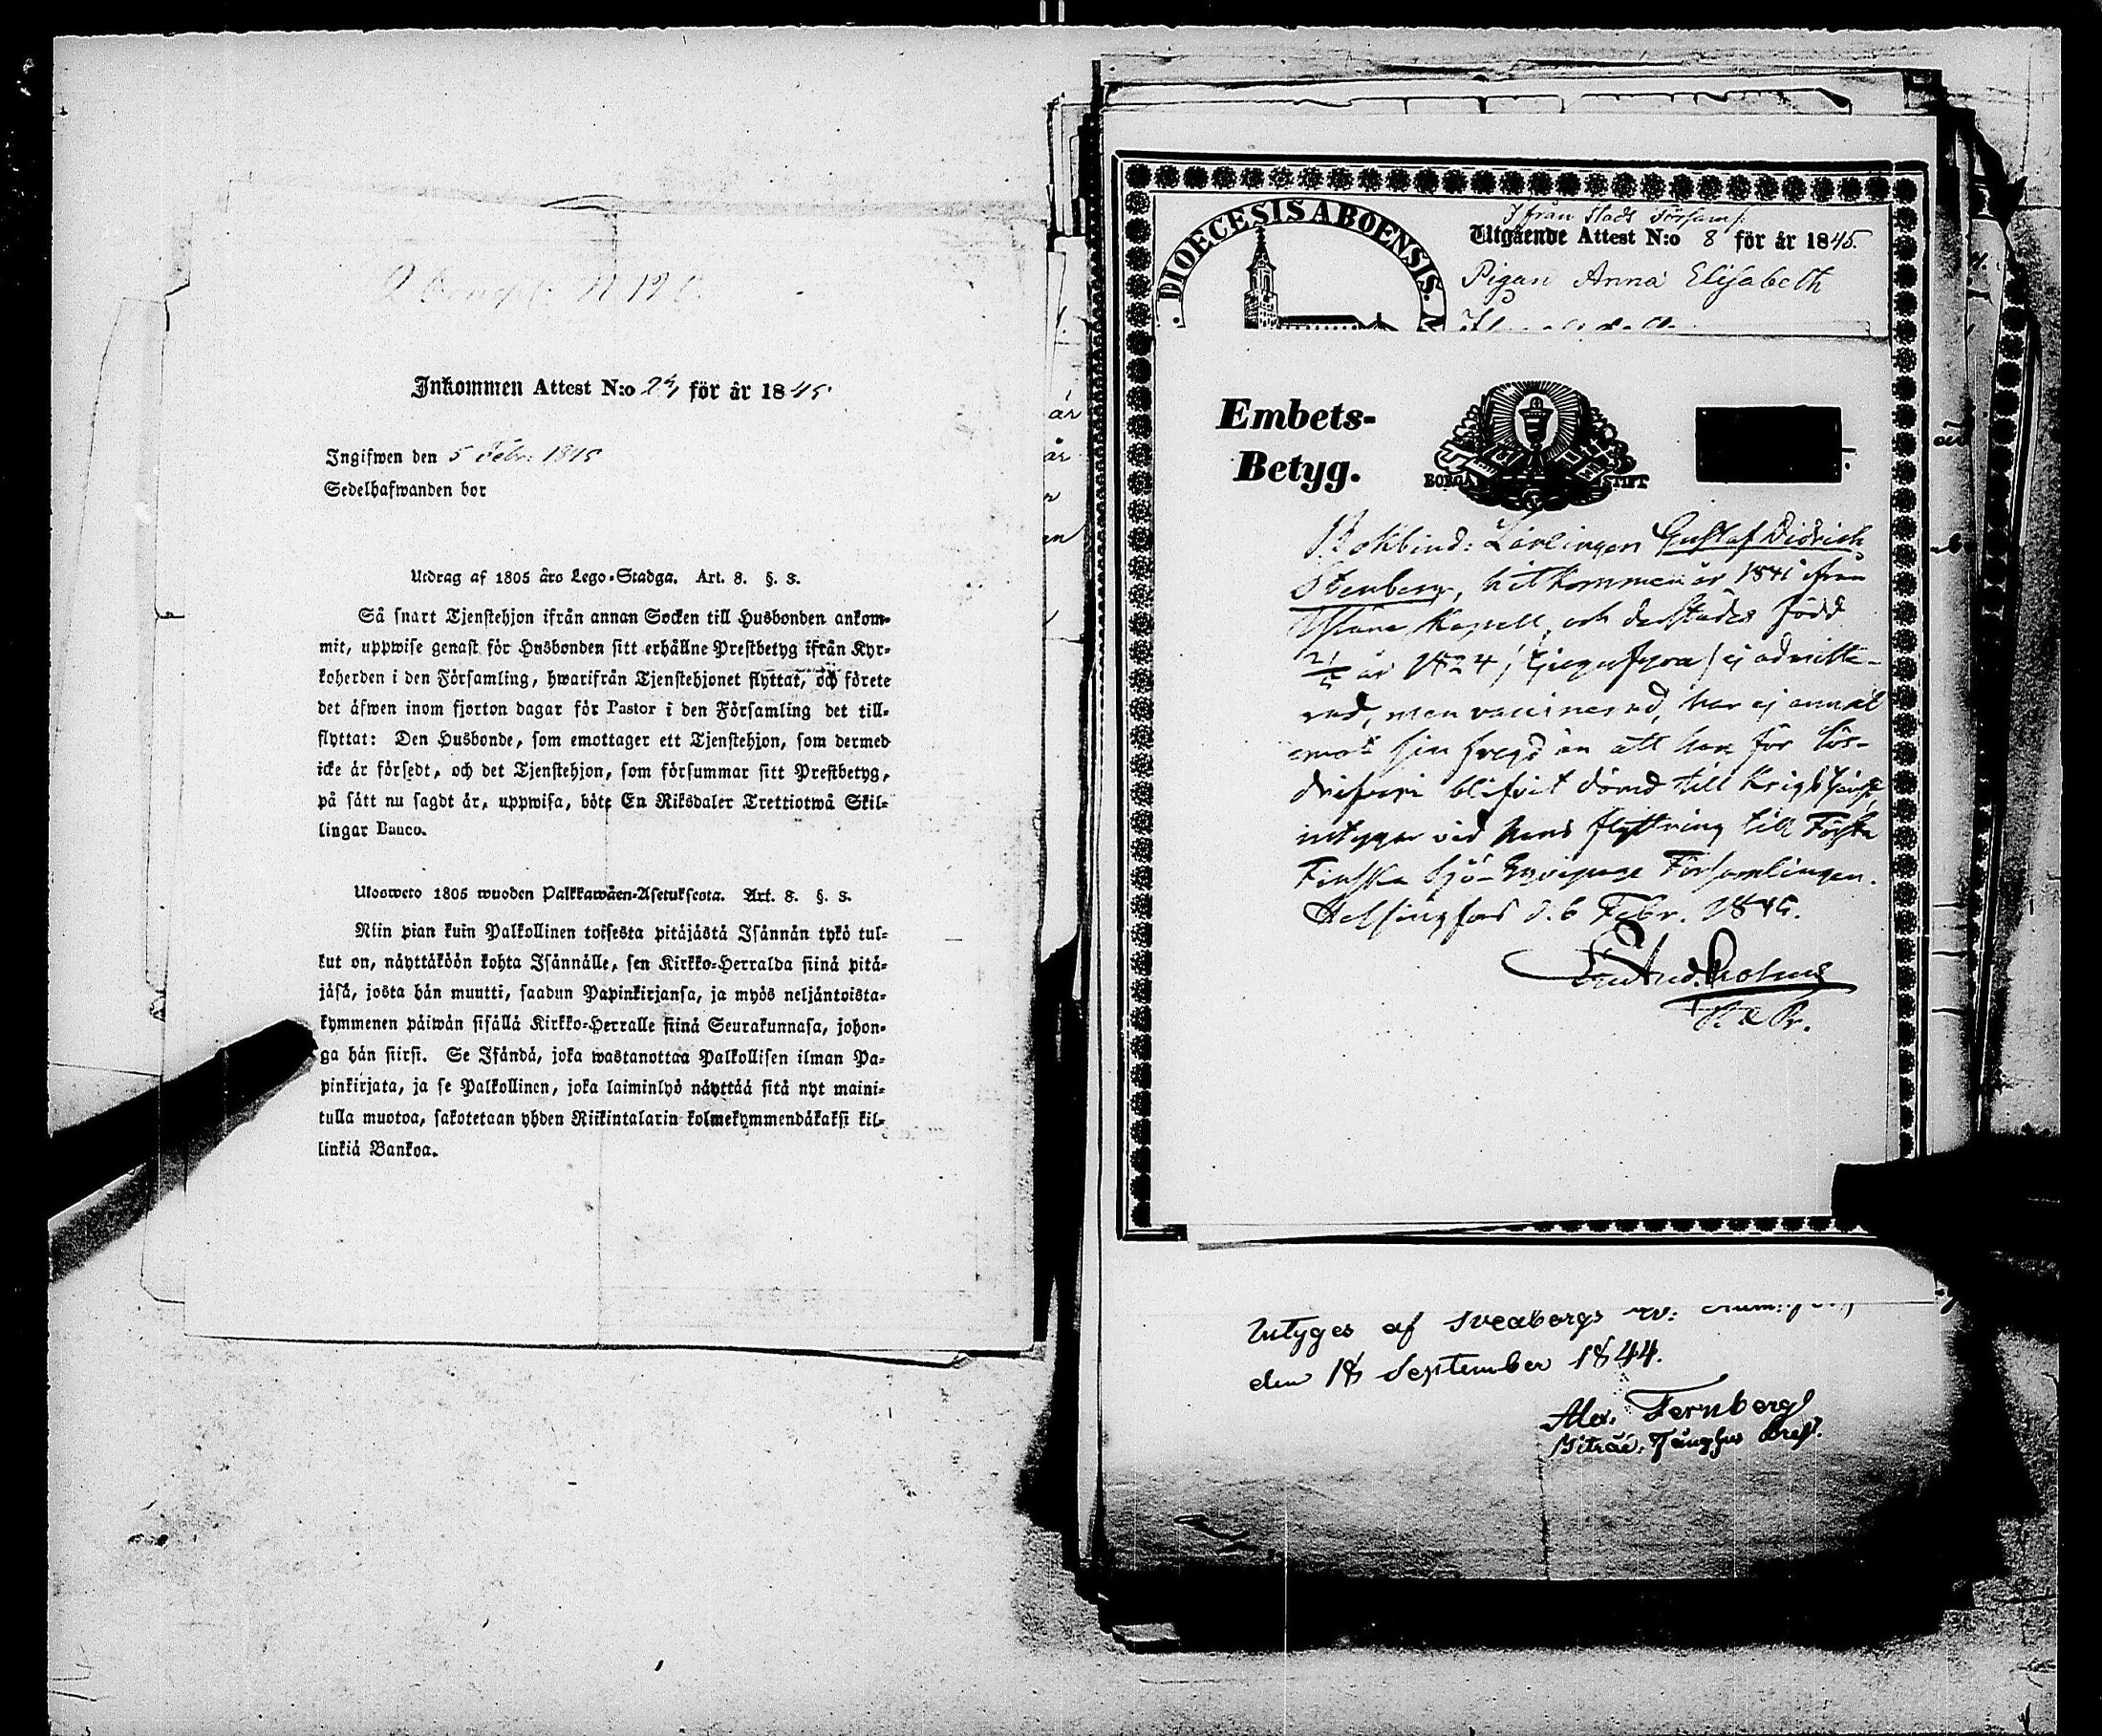 Inkommen Attest N:o 24 för år 1845
Ingifwen den 5 Febr. 1845
Sedelhafwanden bor
Utdrag af 1805 års Lego-Stadga. Art. 8. §. 3.
Så snart Tjenstehjon ifrån annan Socken till Husbonden ankom-
mit, uppwise genast för Husbonden sitt erhållne Prestbetyg ifrån Kyr-
koherden i den Församling, hwarifrån Tjenstehjonet flyttat, och förete
det äfwen inom fjorton dagar för Pastor i den Församling det till-
flyttat: Den Husbonde, som emottager ett Tjenstehjon, som dermed
icke är försedt, och det Tjenstehjon, som försummar sitt Prestbetyg,
på sätt nu sagdt är, uppwisa, böte En Riksdaler Trettiotwå Skil-
lingar Banco.
Ulosweto 1805 wuoden Palkkawäen-Asetuksesta. Art. 8. §. 3.
Niin pian kuin Palkollinen toisesta pitäjästä Isännän tykö tul-
kut on, näyttäköön kohta Isännälle, sen Kirkko-Herralda siinä pitä-
jäsä, josta hän muutti, saadun Papinkirjansa, ja myös neljäntoista-
kymmenen päiwän sisällä Kirkko-Herralle siinä Seurakunnasa, johon-
ga hän siirsi. Se Isändä, joka wastanottaa Palkollisen ilman Pa-
pinkirjata, ja se Palkollinen, joka laiminlyö näyttää sitä nyt maini-
tulla muotoa, sakotetaan yhden Riikintalarin kolmekymmendäkaksi kil-
linkiä Bankoa.
DIOECESIS ABOENSIS.
Ifrån Stads Församl.
Utgående Attest N:o 8 för år 1845.
Pigan Anna Elisabeth
Embets-
Betyg.
BORGÅ STIFT
Bokbind: Lärlingen Gustaf Didrich
Stenberg, hitkommen år 1841 ifrån
Kapell, och derstädes född
21/5 år 1824 /Tjugufyra/ ej admitte-
rad, men vaccinerad, har ej annat
emot sin frejd än att han för lös-
drifveri blifvit dömd till Krigstjenst,
intygar vid hans flyttning till Första
Finska Sjö-Equipage Församlingen.
Helsingfors d. 6 Febr. 1845.
Intyges af Sveaborgs
den 18 September 1844.
Alex. Fernberg
Biträd: Fängse Pred.